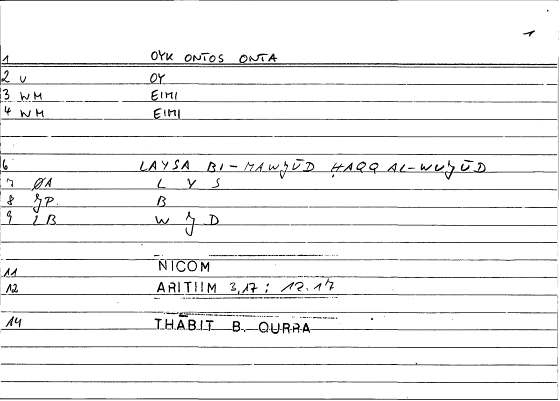 1
1 OYK ONTOS ONTA
2 U OY
3 WM EIMI
4 WM EIMI
6 LAYSA BI-MAWJŪD ḤAQQ AL-WUJŪD
7 ØA L Y S
8 JP. B
9 LB W J D
11 NICOM
12 ARITIIM 3,17 : 12.17
14 THĀBIT B. QURRA